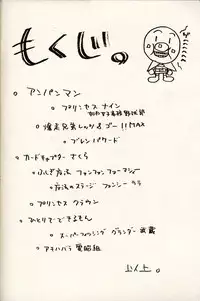 もくじ。
アンパンマン
プリンセスナイン
如月女子高校野球部
爆走兄弟レッツ&ゴー!!MAX
ブレンパワード
カードキャプターさくら
ふしぎ魔法 ファンファンファーマシィー
魔法のステージ ファンシーララ
プリンセスクラウン
ひとりでできるもん
スーパーフィッシング グランダー武蔵
アキハバラ電脳組
以上。